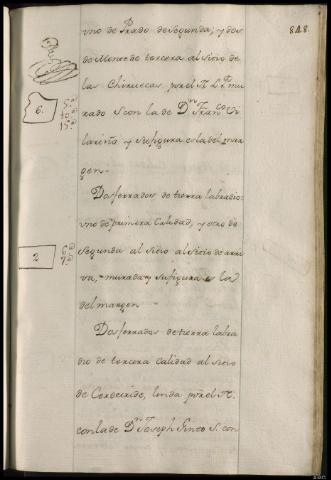 848.
uno de Prado de segunda; y dos
de Monte de tercera al sitio de
las Chiruecas por el N. L. P. mu
rado S. con la de Dn. Franco. Vi
lariño y su figura es la del mar
gen.
6.
Dos ferrados de tierra labradio
uno de primera Calidad, y otro de
segunda al sitio al sitio de arri
va, murada y su figura es la
del margen
2
Dos ferrados de tierra labra
dio de tercera Calidad al sitio
de Corbeiride, linda por el N.
con la de Dn. Joseph Pinto S. con